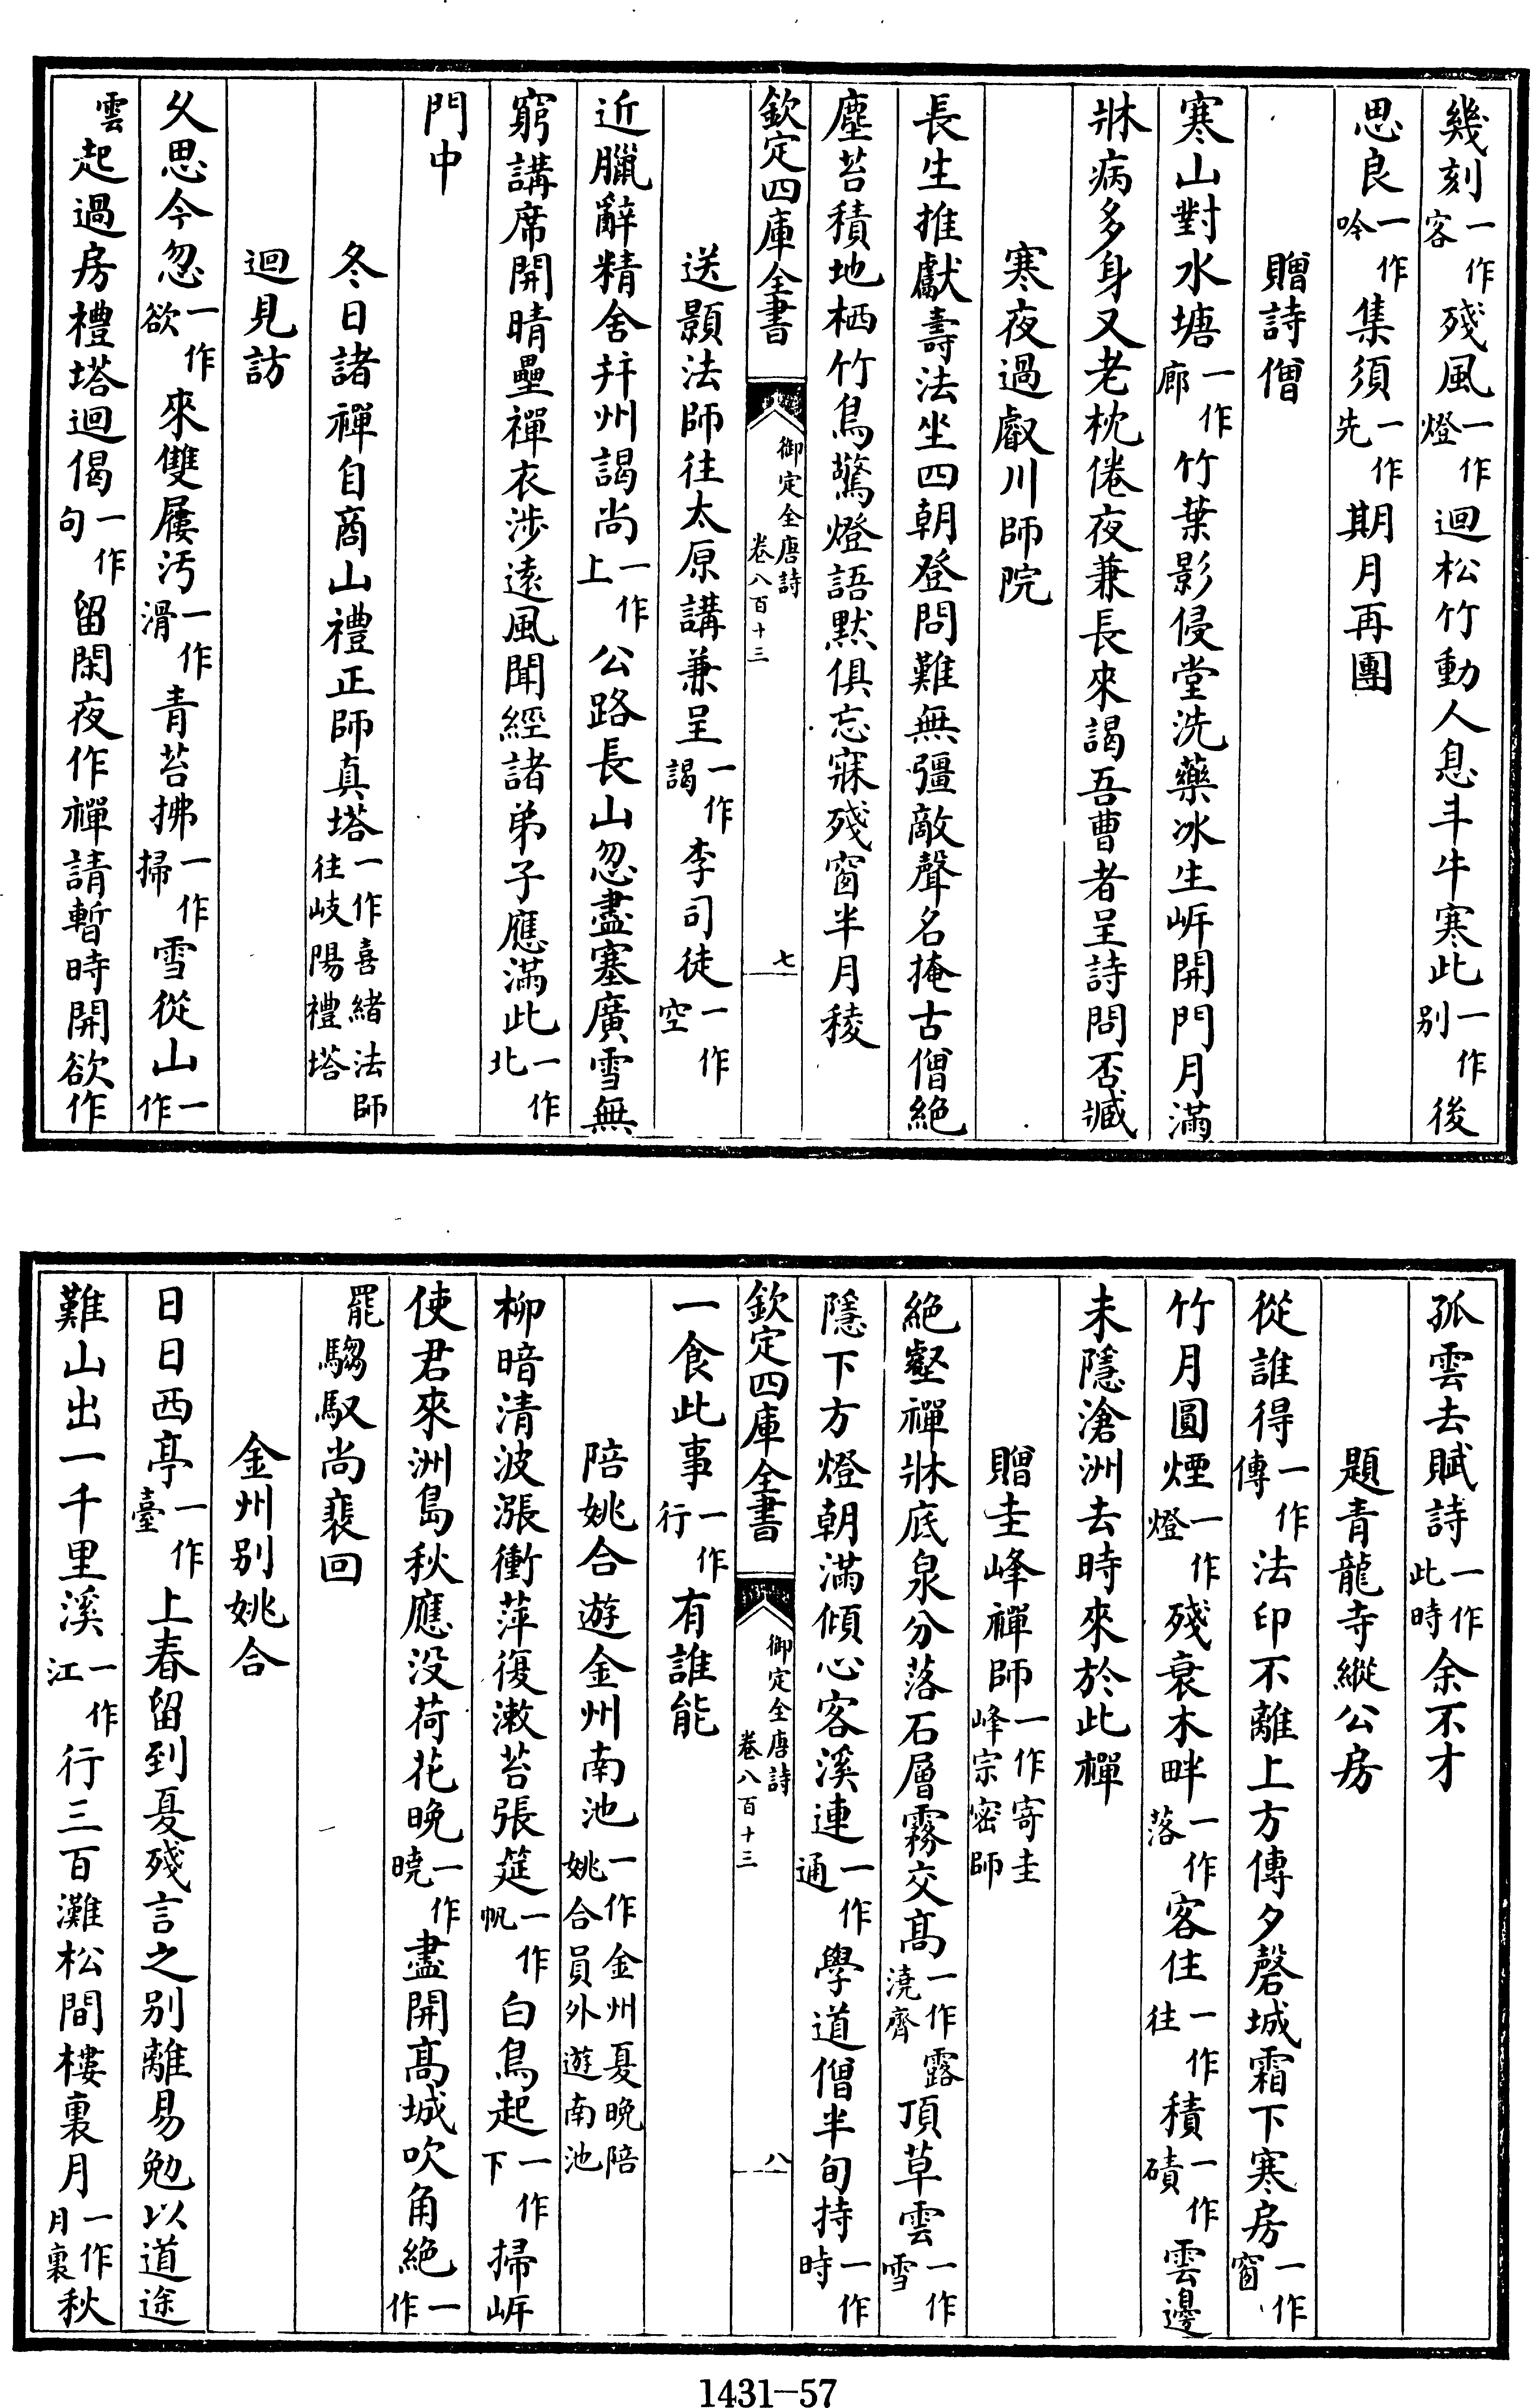 幾刻一作客殘風一作燈迴松竹動人息斗牛寒此一作别後
思良一作吟集須一作先期月再團
贈詩僧
寒山對水塘一作廊竹葉影侵堂洗藥冰生岸開門月滿
牀病多身又老枕倦夜兼長來謁吾曹者呈詩問否臧
寒夜過叡川師院
長生推獻壽法坐四朝登問難無彊敵聲名掩古僧絶
塵苔積地栖竹鳥驚燈語黙俱忘寐殘窗半月稜
欽定四庫全書 御定全唐詩 卷八百十三 七
送顥法師往太原講兼呈一作謁李司徒一作空
近臘辭精舍幷州謁尚一作上公路長山忽盡塞廣雪無
窮講席開晴壘禪衣涉遠風聞經諸弟子應滿此一作北
門中
冬日諸禪自商山禮正師真塔一作喜緒法師往岐陽禮塔
迴見訪
久思今忽一作欲來雙屨汚一作滑青苔拂一作掃雪從山一作
雲起過房禮塔迴偈一作句留閑夜作禪請暫時開欲作
孤雲去賦詩一作此時余不才
題青龍寺縱公房
從誰得一作傳法印不離上方傳夕磬城霜下寒房一作窗
竹月圓煙一作燈殘衰木畔一作落客住一作往積一作磧雲邊
未隱滄洲去時來於此禪
贈圭峰禪師一作寄圭峰宗密師
絶壑禪牀底泉分落石層霧交高一作露澆齊頂草雲一作雪
隱下方燈朝滿傾心客溪連一作通學道僧半旬持一作時
欽定四庫全書 御定全唐詩 卷八百十三 八
一食此事一作行有誰能
陪姚合遊金州南池一作金州夏晚陪姚合員外遊南池
柳暗清波漲衝萍復漱苔張筵一作帆白鳥起一作下掃岸
使君來洲島秋應没荷花晚一作曉盡開高城吹角絶一作
罷騶馭尚裵回
金州别姚合
日日西亭一作臺上春留到夏殘言之别離易勉以道途
難山出一千里溪一作江行三百灘松間樓裏月一作月裏秋
1431—57